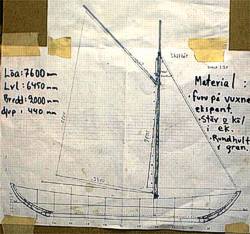 Löa: 7600 mm
Lvl: 6450 mm
Bredd: 2000 mm
djup: 440 mm
Material:
• furu på vuxne
ekspant.
• Stäv o köl
i ek.
• Rundhult
i gran.